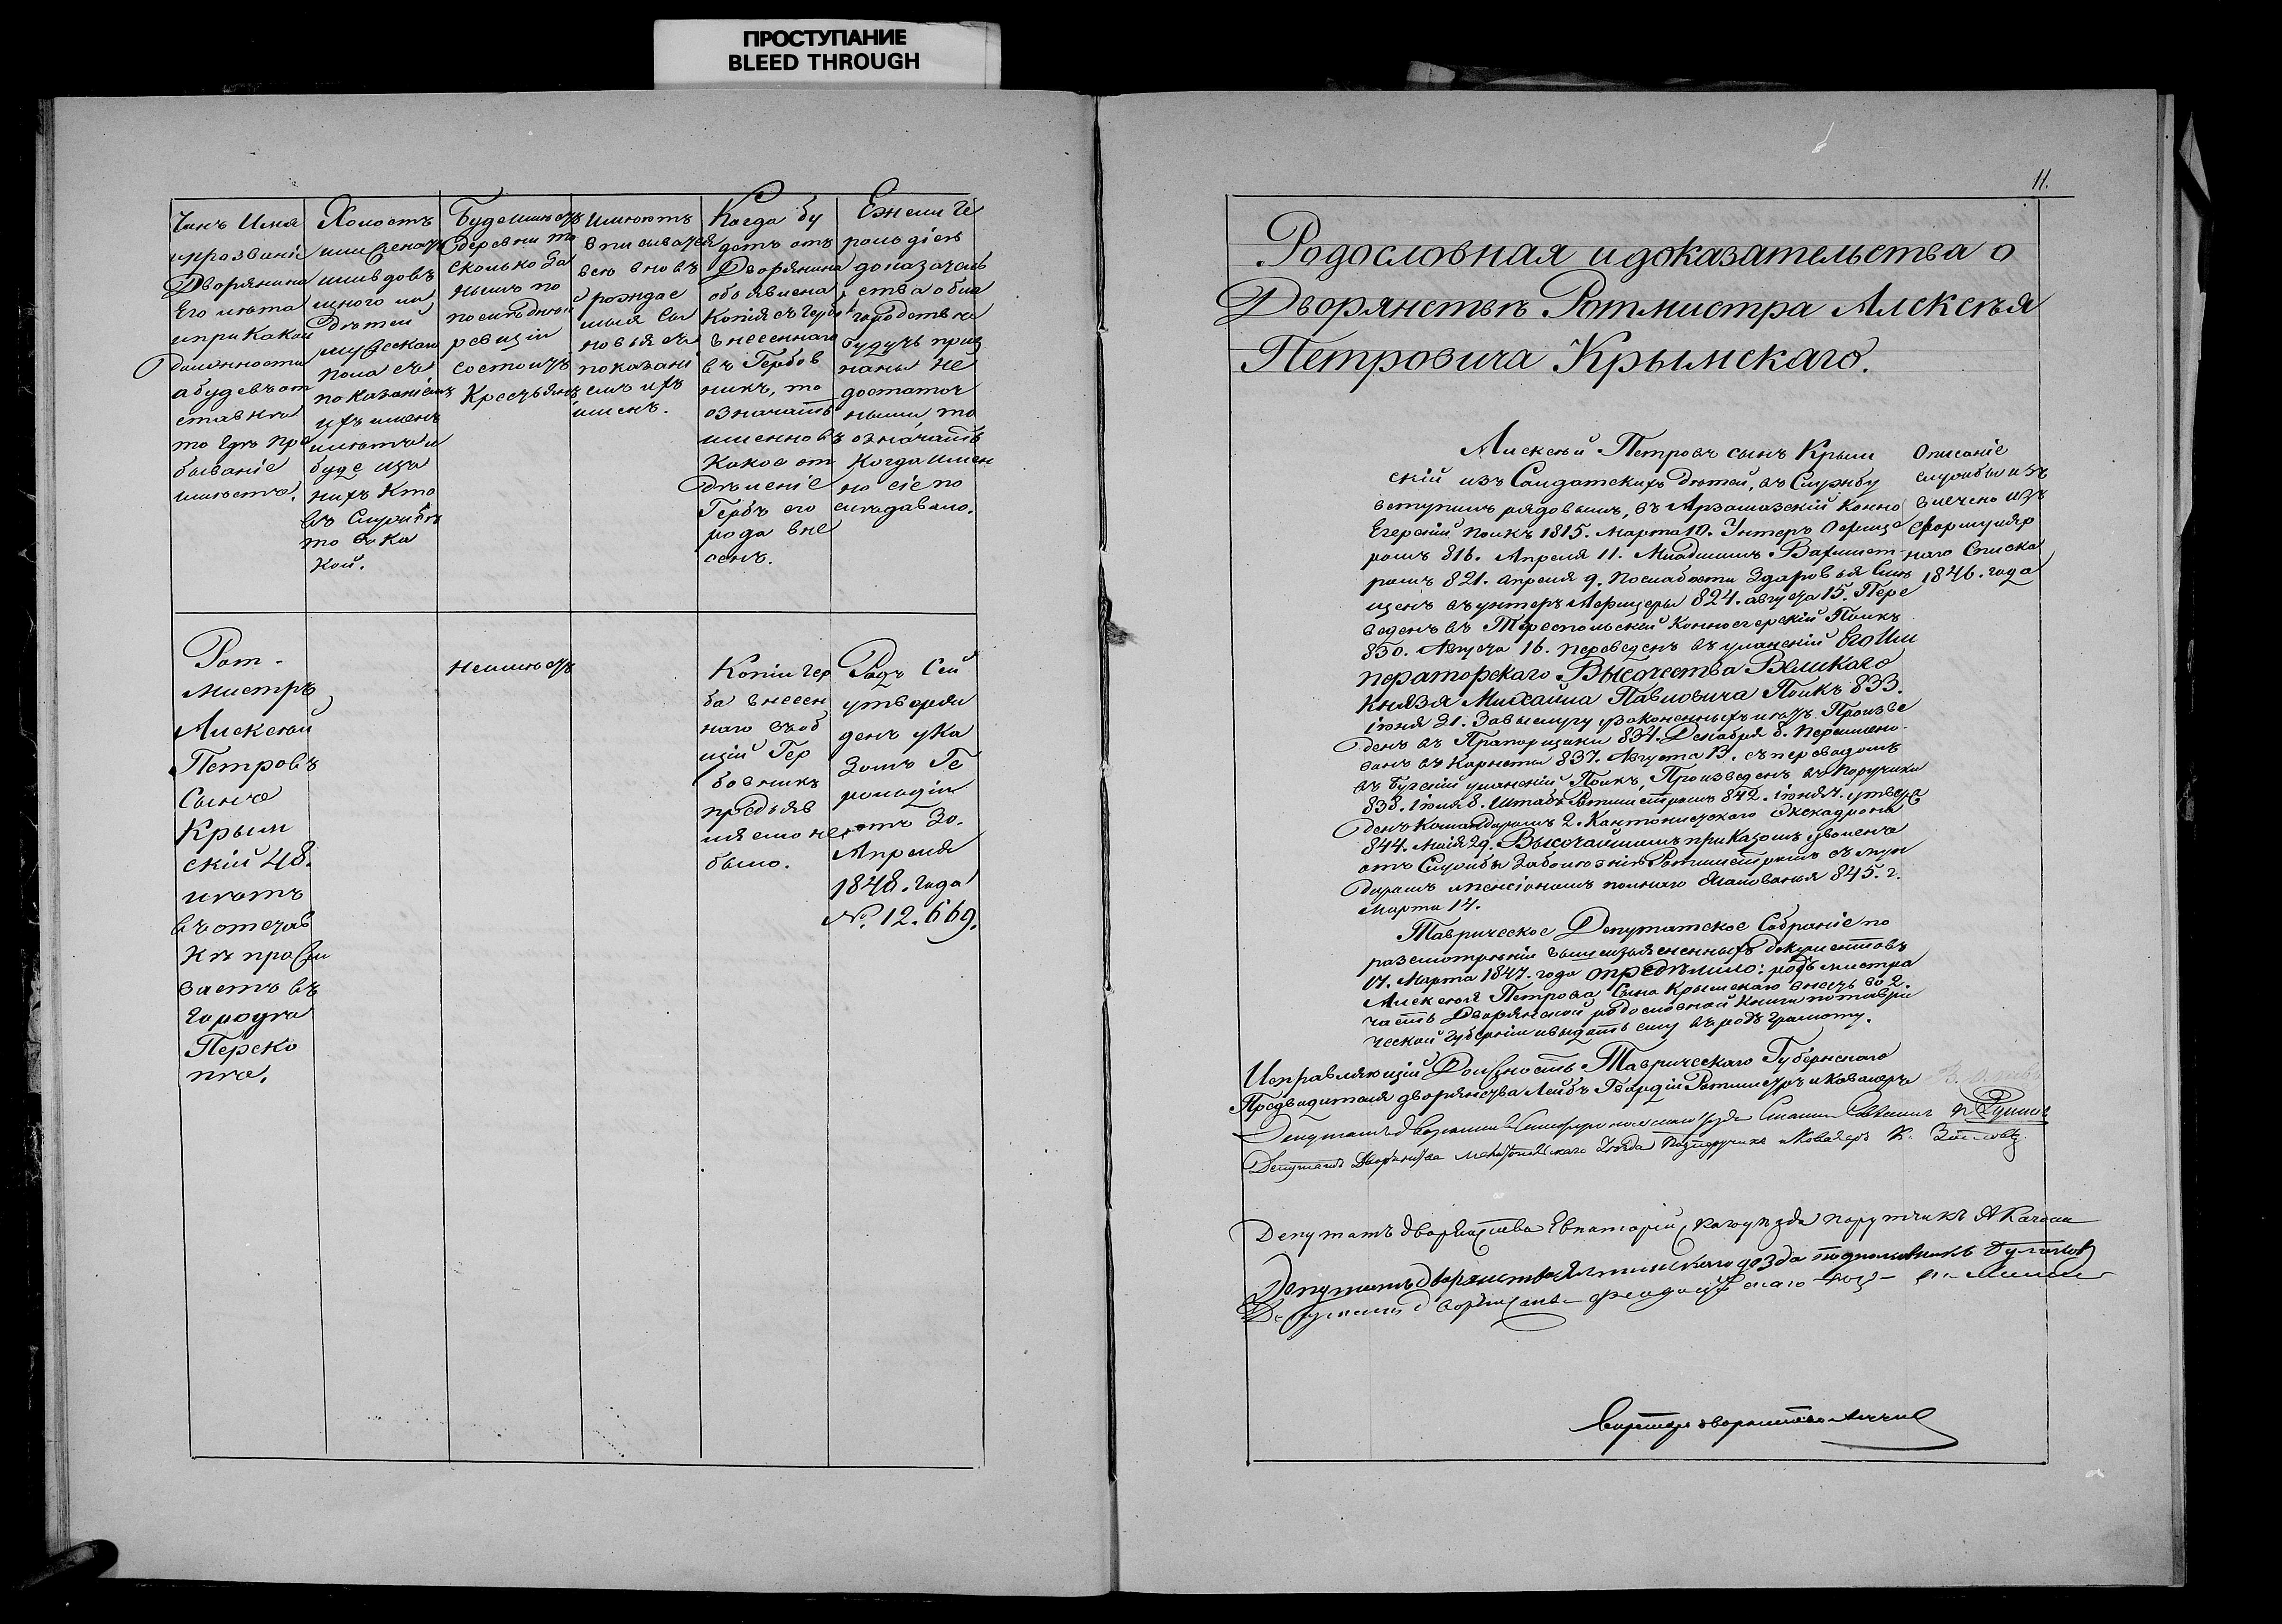 ПРОСТУПАНИЕ
BLEED THROUGH
Чинъ Имя
ипрозвание
Дворянина
Его лѣта
ипри какой
должности
а буде въ от
ставкѣ
то гдѣ пре
бываніе
имѣетъ.
Холостъ
или женатъ
или вдовъ
много ли
дѣтей
мужескаго
пола съ
показаніемъ
ихъ именъ
илѣтъ и
буде изъ
нихъ кто
въ Службѣ
то въ ка
кой.
Буде имѣетъ
деревни то
сколько за
нимъ по
послѣдней
ревизіи
состоитъ
Крестьянъ
имѣютъ
вписыватся
всѣ вновь
рождае
мыя сы
новья съ
показані
емъ ихъ
имянъ.
Когда бу
детъ отъ
Дворянина
объявлена
копія съ герба
внесеннаго
въ Гербов
никъ, то
означать
именно въ
какое от
дѣленіе
Гербъ его
рода вне
сенъ.
Ежели Ге
рольдіею
доказатель
ства о бла
городствѣ
будутъ приз
наны не
достаточ
ными то
означать
когда имен
но сіе по
слѣдавало.
Рот-
мистръ
Алексѣй
Петровъ
Сынъ
Крым
скій 48.
лѣтъ
въ отстав
кѣ прожи
ваетъ въ
городѣ
Переко
пѣ.
не имѣетъ
Копіи гер
ба внесен
наго въ об
щій Гер
бовникъ
предъяв
ляемо не
было.
Родъ Сей
утверж
денъ ука
зомъ Ге
рольдіи
отъ 30.
Апреля
1848. года
№. 12.669.
11.
Родословная и доказательства о
Дворянствѣ Ротмистра Алексѣя
Петровича Крымскаго.
Алексѣй Петровъ сынъ Крым
скій изъ Солдатскихъ дѣтей, въ Службу
вступилъ рядовымъ, въ Арзамазскій Конно
Егерскій полкъ 1815. Марта 10. Унтеръ Офице
ромъ 816. Апреля 11. Младшимъ Вахмист-
ромъ 821. апреля 9. По слабости Здаровья Смѣ
щенъ въ унтеръ Афицеры 824. августа 15. Пере
веденъ въ Тираспольскій Конноегерскій Полкъ
830. Августа 16. переведенъ въ уланскій Его Им
ператорскаго Высочества Великаго
Князя Михаила Павловича Полкъ 833.
іюня 21. За выслугу узаконенныхъ лѣтъ Произве
денъ въ Прапорщики 834. Декабря 8. переимено-
ванъ въ Карнеты 837. Августа 13. съ переводомъ
въ Бугскій уланскій Полкъ, Произведенъ въ поручики
838. іюля 8. Штабъ Ротмистромъ 842. іюня 4. утверж
денъ Командиромъ 2. Кантонистскаго Эскадрона
844. Маія 29. Высочайшимъ приказомъ уволенъ
отъ Службы За болѣзнію Ротмистромъ съ мун
диромъ и пенсіономъ полнаго Жалованья 845. г.
Марта 14.
Описаніе
службы из
влечено изъ
Формуляр
наго Списка
1846. года
Таврическое Депутатское Собраніе по
разсмотрѣніи вышеизъясненныхъ документовъ
17. Марта 1847. года опредѣлило: родъ мистра
Алексѣя Петрова Сына Крымскаго внесть во 2.
часть Дворянской родословной книги по таври
ческой губерніи и выдать ему въ родъ грамоту.
Исправляющій Должность Таврическаго Губернскаго
Предводителя дворянства Лейбъ Гвардіи Ротмистръ и Кавалеръ
Депутатъ дворянства Симферопольскаго уѣзда
Депутатъ Дворянства Мелитопольскаго Уѣзда Подпоручикъ и Кавалеръ К.
Депутатъ дворянства Евпаторійскаго уѣзда поручикъ А Качони
Депутатъ дворянства Ялтинскаго уѣзда подполковникъ
Депутатъ дворянства Феодосійскаго
Секретарь дворянства